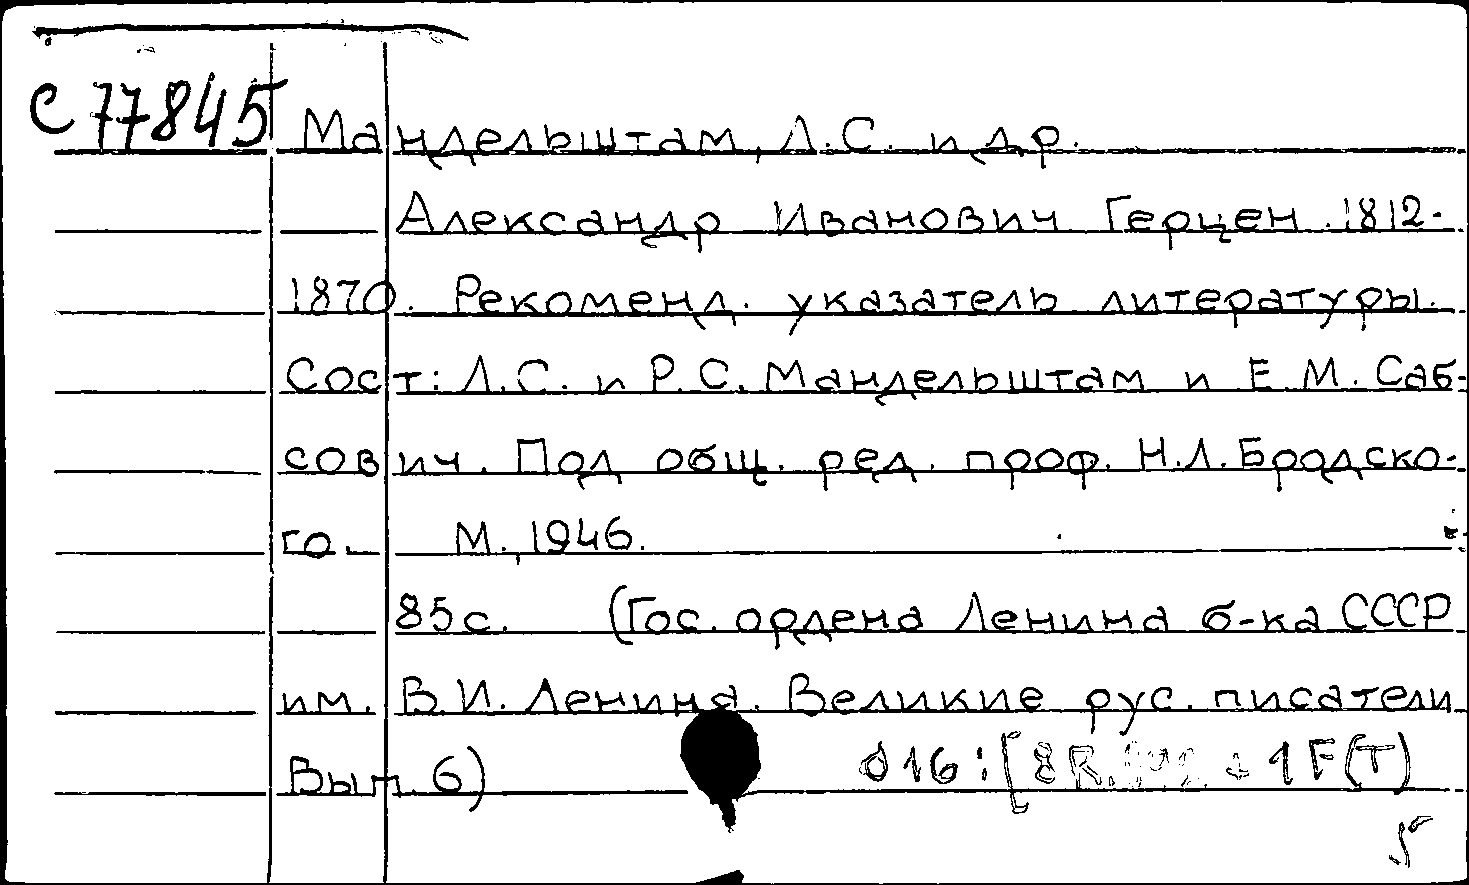 С 77845 Мандельштам, Л.С. и др.
Александр Иванович Герцен. 1812-
1870. Рекоменд. указатель литературы.
Сост: Л.С. и Р.С. Мандельштам и Е.М. Саб-
сович. Под общ. ред. проф. Н.Л. Бродско-
го. М., 1946.
85с. (Гос. ордена Ленина б-ка СССР
им. В.И. Ленина. Великие рус. писатели
Вып. 6) 016:[8R. + 1F(T)
5